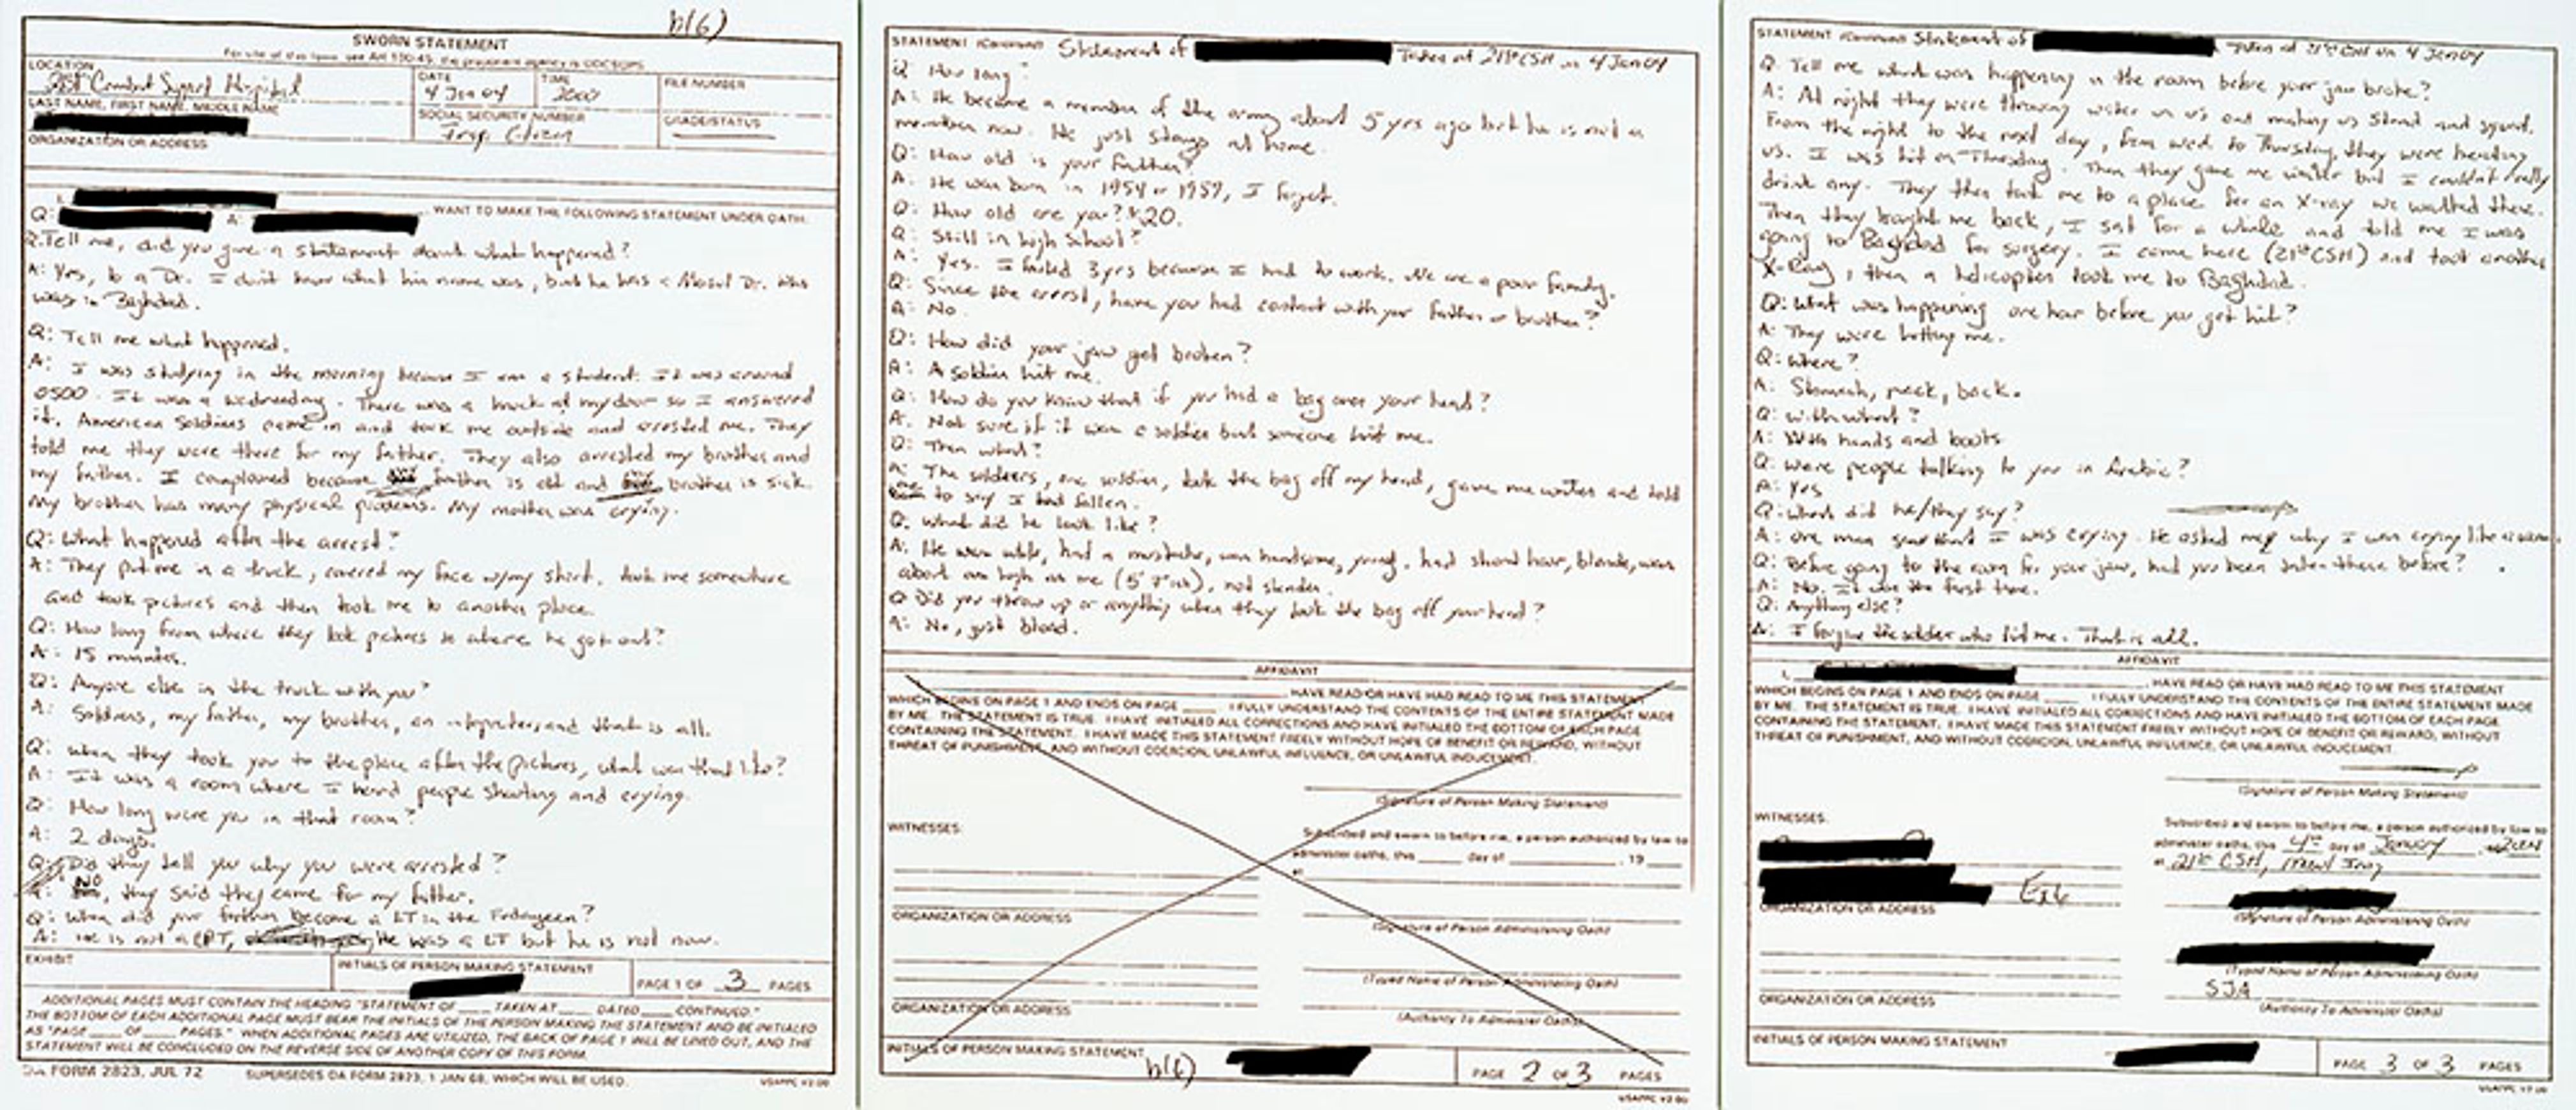 b(6)
SWORN STATEMENT
For use of this form, see AR 190-45, the proponent agency is ODCSOPS
LOCATION
21st Combat Support Hospital
DATE
4 Jan 04
TIME
2000
FILE NUMBER
LAST NAME, FIRST NAME, MIDDLE NAME
SOCIAL SECURITY NUMBER
Iraqi Citizen
GRADE/STATUS
ORGANIZATION OR ADDRESS
I,
Q: A: , WANT TO MAKE THE FOLLOWING STATEMENT UNDER OATH:
Q: Tell me, did you give a statement about what happened?
A: Yes, to a Dr. I don't know what his name was, but he was a Mosul Dr. who
was in Baghdad.
Q: Tell me what happened.
A: I was studying in the morning because I am a student. It was around
0500. It was a Wednesday. There was a knock at my door so I answered
it. American Soldiers came in and took me outside and arrested me. They
told me they were there for my father. They also arrested my brother and
my father. I complained because father is old and brother is sick.
My brother has many physical problems. My mother was crying.
Q: What happened after the arrest?
A: They put me in a truck, covered my face w/my shirt, took me somewhere
and took pictures and then took me to another place.
Q: How long from where they took pictures to where he got out?
A: 15 minutes.
Q: Anyone else in the truck with you?
A: Soldiers, my father, my brother, an interpreter, and that is all.
Q: When they took you to the place after the pictures, what was that like?
A: It was a room where I heard people shouting and crying.
Q: How long were you in that room?
A: 2 days.
Q: Did they tell you why you were arrested?
A: No, they said they came for my father.
Q: When did your father become a LT in the Fedayeen?
A: He is not a CPT, He was a LT but he is not now.
EXHIBIT
INITIALS OF PERSON MAKING STATEMENT
PAGE 1 OF 3 PAGES
ADDITIONAL PAGES MUST CONTAIN THE HEADING "STATEMENT OF ____ TAKEN AT ____ DATED ____ CONTINUED."
THE BOTTOM OF EACH ADDITIONAL PAGE MUST BEAR THE INITIALS OF THE PERSON MAKING THE STATEMENT AND BE INITIALED
AS "PAGE ____ OF ____ PAGES." WHEN ADDITIONAL PAGES ARE UTILIZED, THE BACK OF PAGE 1 WILL BE LINED OUT, AND THE
STATEMENT WILL BE CONCLUDED ON THE REVERSE SIDE OF ANOTHER COPY OF THIS FORM.
DA FORM 2823, JUL 72
SUPERSEDES DA FORM 2823, 1 JAN 68, WHICH WILL BE USED.
USAPPC V2.00
STATEMENT (Continued) Statement of Taken at 21st CSH on 4 Jan 04
Q: How long?
A: He became a member of the army about 5 yrs ago but he is not a
member now. He just stays at home.
Q: How old is your father?
A: He was born in 1954 or 1957, I forget.
Q: How old are you? A: 20.
Q: Still in high School?
A: Yes. I failed 3 yrs because I had to work. We are a poor family.
Q: Since the arrest, have you had contact with your father or brother?
A: No.
Q: How did your jaw get broken?
A: A soldier hit me.
Q: How do you know that if you had a bag over your head?
A: Not sure if it was a soldier but someone hit me.
Q: Then what?
A: The soldiers, one soldier, took the bag off my head, gave me water and told
me to say I had fallen.
Q: What did he look like?
A: He was white, had a mustache, was handsome, young, had short hair, blonde, was
about as high as me, not slender.
Q: Did you throw up or anything when they took the bag off your head?
A: No, just blood.
AFFIDAVIT
, HAVE READ OR HAVE HAD READ TO ME THIS STATEMENT
WHICH BEGINS ON PAGE 1 AND ENDS ON PAGE ____. I FULLY UNDERSTAND THE CONTENTS OF THE ENTIRE STATEMENT MADE
BY ME. THE STATEMENT IS TRUE. I HAVE INITIALED ALL CORRECTIONS AND HAVE INITIALED THE BOTTOM OF EACH PAGE
CONTAINING THE STATEMENT. I HAVE MADE THIS STATEMENT FREELY WITHOUT HOPE OF BENEFIT OR REWARD, WITHOUT
THREAT OF PUNISHMENT, AND WITHOUT COERCION, UNLAWFUL INFLUENCE, OR UNLAWFUL INDUCEMENT.
(Signature of Person Making Statement)
WITNESSES:
Subscribed and sworn to before me, a person authorized by law to
administer oaths, this ____ day of ____, 19 ____
at
ORGANIZATION OR ADDRESS
(Signature of Person Administering Oath)
(Typed Name of Person Administering Oath)
ORGANIZATION OR ADDRESS
(Authority To Administer Oaths)
INITIALS OF PERSON MAKING STATEMENT
b(6)
PAGE 2 OF 3 PAGES
USAPPC V2.00
STATEMENT (Continued) Statement of Taken at 21st CSH on 4 Jan 04
Q: Tell me what was happening in the room before your jaw broke?
A: All night they were throwing water on us and making us stand and squat.
From the night to the next day, from wed to Thursday, they were beating
us. I was hit on Thursday. Then they gave me water but I couldn't really
drink any. They then took me to a place for an X-ray we walked there.
Then they brought me back, I sat for a while and told me I was
going to Baghdad for surgery. I came here (21st CSH) and took another
X-Ray, then a helicopter took me to Baghdad.
Q: What was happening one hour before you got hit?
A: They were hitting me.
Q: Where?
A: Stomach, neck, back.
Q: With what?
A: With hands and boots
Q: Were people talking to you in Arabic?
A: Yes
Q: What did he/they say?
A: One man saw that I was crying. He asked me why I was crying like a woman.
Q: Before going to the room for your jaw, had you been taken there before?
A: No. It was the first time.
Q: Anything else?
A: I forgive the soldier who hit me. That is all.
AFFIDAVIT
I, , HAVE READ OR HAVE HAD READ TO ME THIS STATEMENT
WHICH BEGINS ON PAGE 1 AND ENDS ON PAGE ____. I FULLY UNDERSTAND THE CONTENTS OF THE ENTIRE STATEMENT MADE
BY ME. THE STATEMENT IS TRUE. I HAVE INITIALED ALL CORRECTIONS AND HAVE INITIALED THE BOTTOM OF EACH PAGE
CONTAINING THE STATEMENT. I HAVE MADE THIS STATEMENT FREELY WITHOUT HOPE OF BENEFIT OR REWARD, WITHOUT
THREAT OF PUNISHMENT, AND WITHOUT COERCION, UNLAWFUL INFLUENCE, OR UNLAWFUL INDUCEMENT.
(Signature of Person Making Statement)
WITNESSES:
Subscribed and sworn to before me, a person authorized by law to
administer oaths, this 4th day of January, 2004
at 21st CSH, Mosul Iraq
ORGANIZATION OR ADDRESS
(Signature of Person Administering Oath)
(Typed Name of Person Administering Oath)
SJA
ORGANIZATION OR ADDRESS
(Authority To Administer Oaths)
INITIALS OF PERSON MAKING STATEMENT
PAGE 3 OF 3 PAGES
USAPPC V2.00